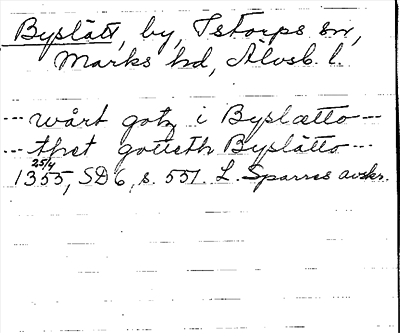 Byslätt, by, Istorps sn,
Marks hd, Älvsb. l.
--- wårt gotz i Byslætto ---
--- thet gotzeth Byslätto ---
25/4
1355, SD 6, s. 551. L. Sparres avskr.